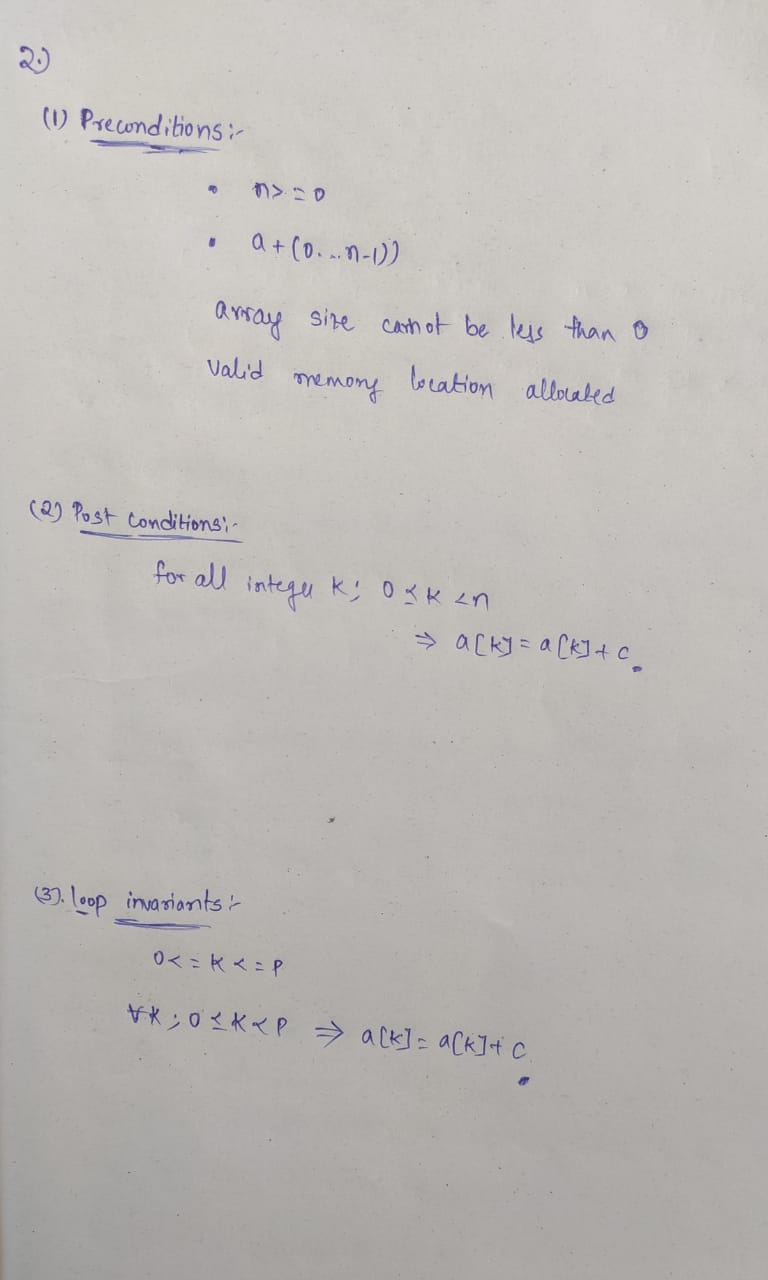 2.)
(1) Preconditions:-
• n>=0
• a+(0...n-1))
array size cannot be less than 0
Valid memory location allocated
(2) Post Conditions:-
for all integer K; 0 ≤ K < n
⇒ a[k] = a[k] + c.
(3). loop invariants:-
0<=K<=P
∀K; 0 ≤ K < P ⇒ a[k] = a[k] + c.